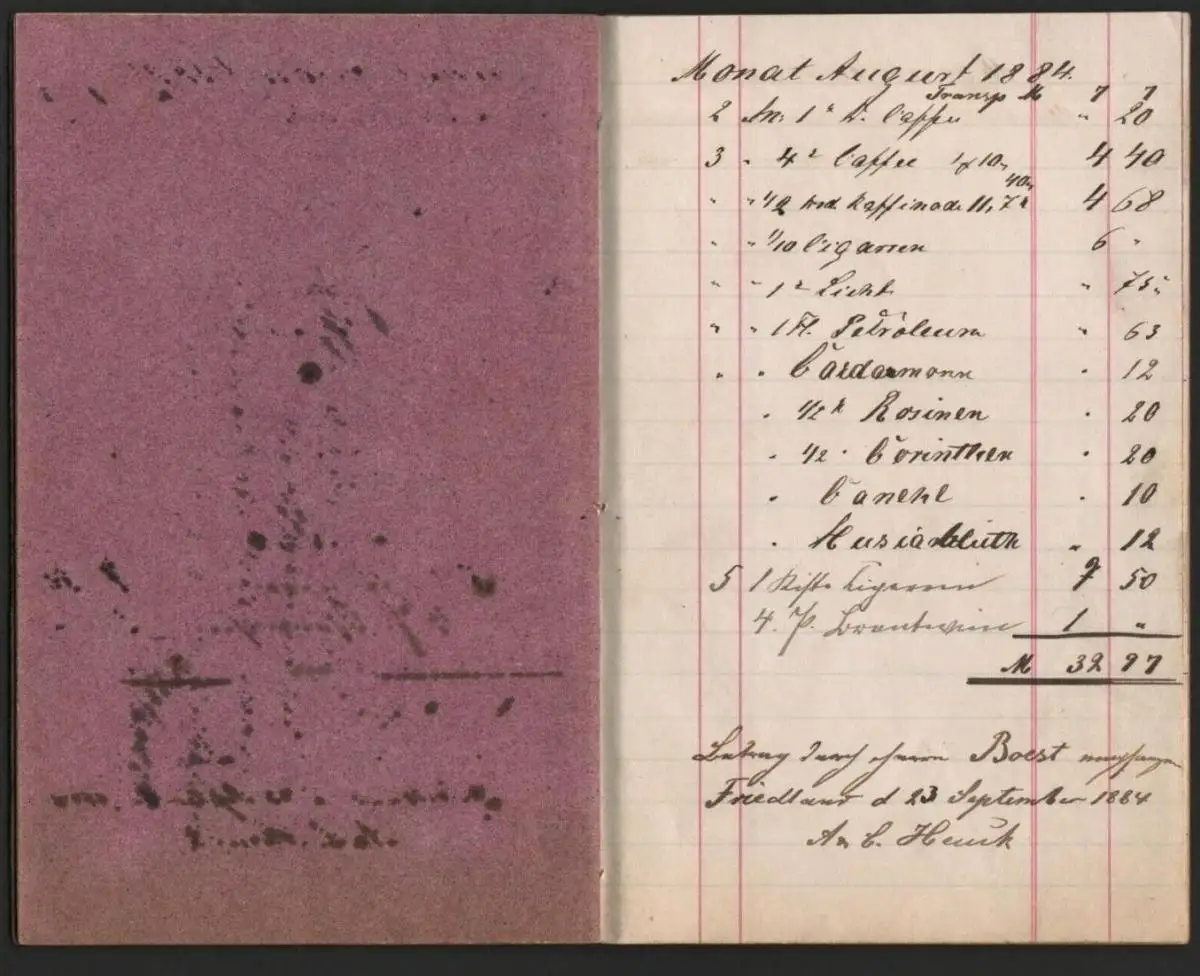 Monat August 1884.
Transp M 7 7
2 An: 1 " Caffee " 20
3 " 4 " Caffee 1 10 " 4 40
40
" " 1/2 brd. Raffinade 11, 7 4 68
" " 1/10 Cigarren 6 "
" " 1 " Licht " 75
" " 1 Fl. Petroleum " 63
" " Cardamonn " 12
" 1/2 " Rosinen " 20
" 1/2 " Corinthen " 20
" Canehl " 10
" Musiatbluth " 12
5 1 Kiste Cigarren 7 50
4. P. Brantwein 1 "
M 32 97
Betrag durch Herrn Boest empfangen
Friedland d 23 September 1884
C. Henck